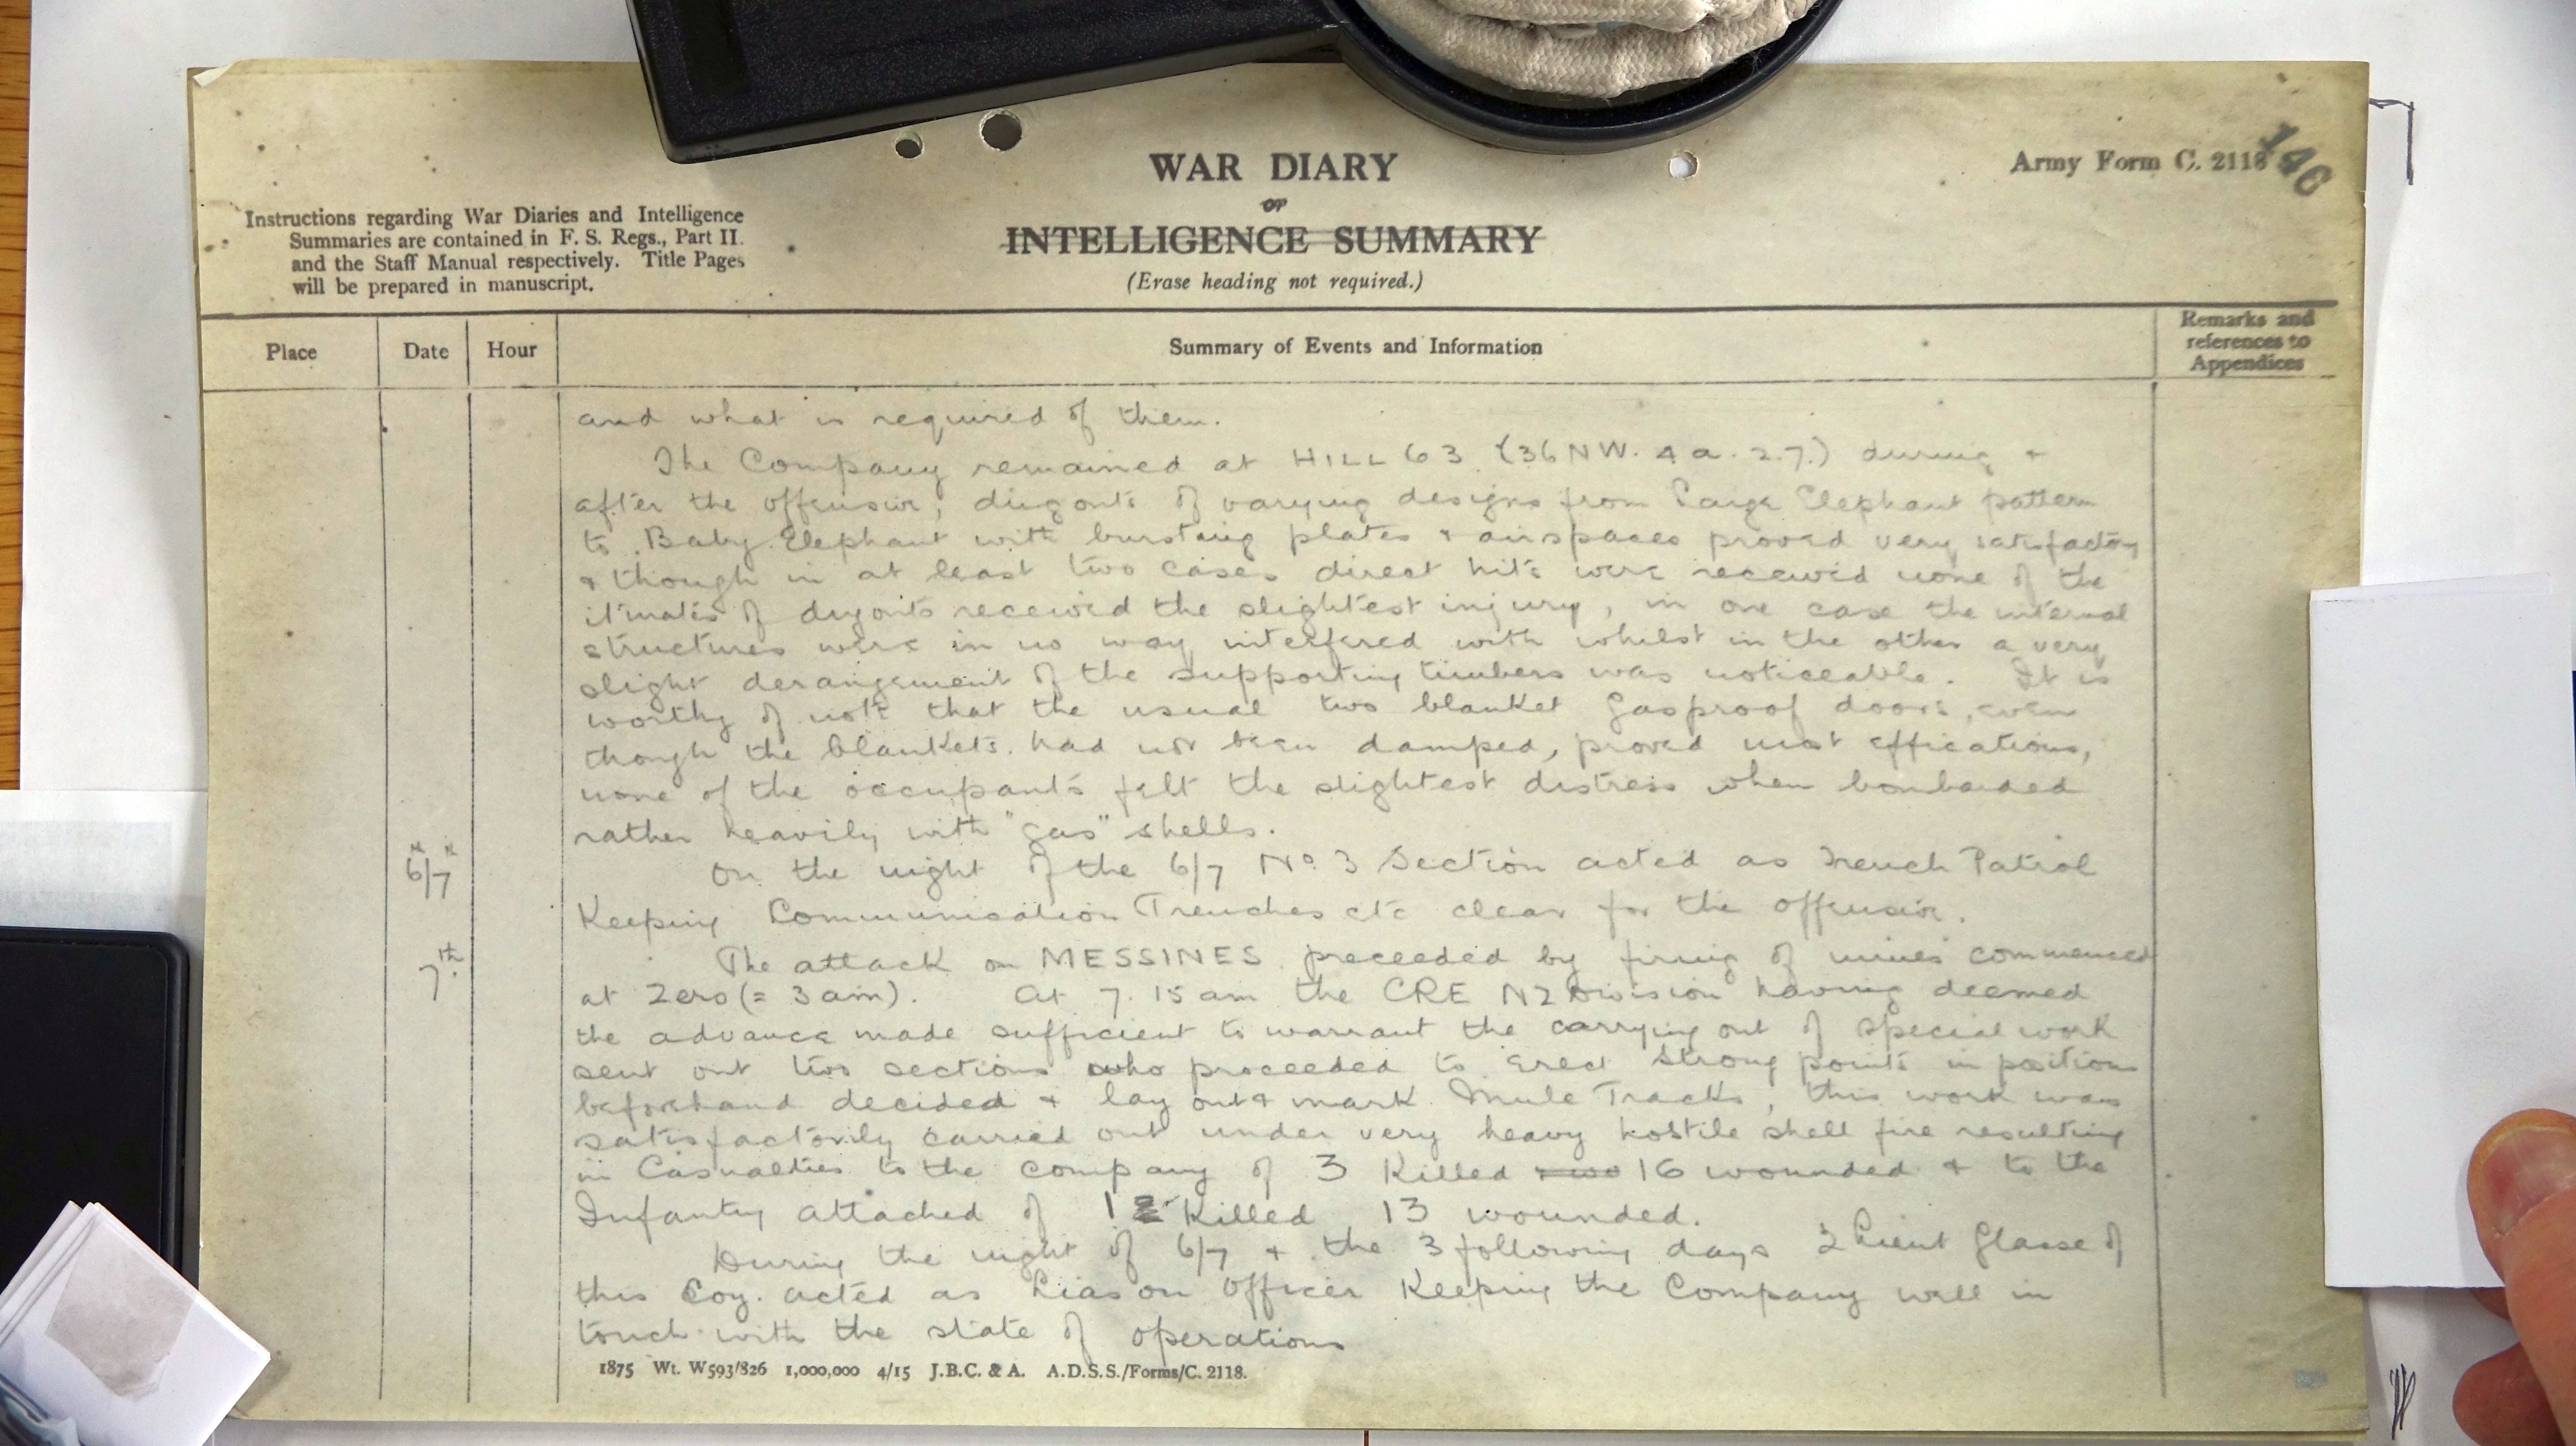 WAR DIARY
or
INTELLIGENCE SUMMARY
(Erase heading not required.)
Army Form C. 2118
146
Instructions regarding War Diaries and Intelligence
Summaries are contained in F. S. Regs., Part II.
and the Staff Manual respectively. Title Pages
will be prepared in manuscript.
Place Date Hour Summary of Events and Information Remarks and references to Appendices
and what is required of them.
The Company remained at HILL 63 (36NW. 4 a. 2.7.) during +
after the offensive; dugouts of varying designs from Large Elephant pattern
to Baby Elephant with bursting plates + airspaces proved very satisfactory
+ though in at least two cases direct hits were received none of the
inmates of dugouts received the slightest injury, in one case the internal
structures were in no way interfered with whilst in the other a very
slight derangement of the supporting timbers was noticeable. It is
worthy of note that the usual two blanket gasproof doors, even
though the blankets had not been damped, proved most efficatious,
none of the occupants felt the slightest distress when bombarded
rather heavily with "gas" shells.
6/7 On the night of the 6/7 No 3 Section acted as Trench Patrol
Keeping Communication Trenches etc clear for the offensive.
7th. The attack on MESSINES preceeded by firing of mines commenced
at Zero (= 3 am). At 7.15 am the CRE NZ Division having deemed
the advance made sufficient to warrant the carrying out of special work
sent out two sections who proceeded to erect strong points in positions
beforehand decided + lay out + mark Mule Tracks, this work was
satisfactorily carried out under very heavy hostile shell fire resulting
in Casualties to the company of 3 Killed 16 wounded + to the
Infantry attached of 1 Killed 13 wounded.
During the night of 6/7 + the 3 following days 2 Lieut Glasse of
this Coy. acted as Liason Officer Keeping the Company well in
touch with the state of operations
1875 Wt. W593/826 1,000,000 4/15 J.B.C. & A. A.D.S.S./Forms/C. 2118.